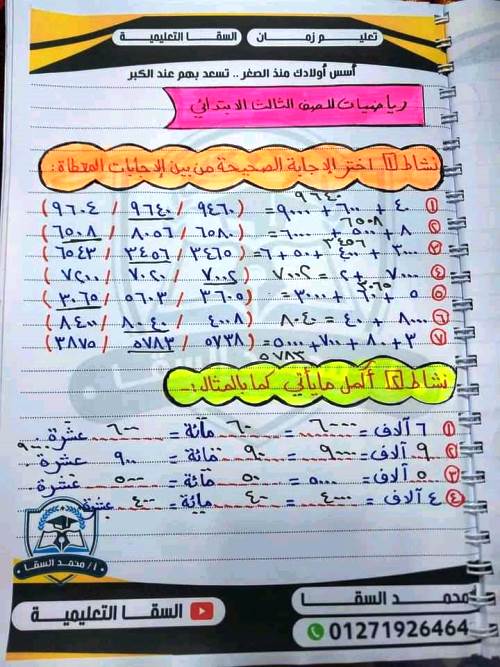 تعليم زمان السقا التعليمية
أسس أولادك منذ الصغر .. تسعد بهم عند الكبر
رياضيات للصف الثالث الابتدائي
نشاط ١ اختر الإجابة الصحيحة من بين الإجابات المعطاة:
٩٦٤٠
١ ٤٠ + ٦٠٠ + ٩٠٠٠ = (٩٤٦٠ / ٩٦٤٠ / ٩٦٠٤)
٦٥٠٨
٢ ٨ + ٥٠٠ + ٦٠٠٠ = (٦٥٨٠ / ٨٠٥٦ / ٦٥٠٨)
٣٤٥٦
٣ ٣٠٠٠ + ٤٠٠ + ٥٠ + ٦ = (٣٤٦٥ / ٣٤٥٦ / ٦٥٤٣)
٤ ٧٠٠٠ + ٢ = ٧٠٠٢ (٧٠٠٢ / ٧٠٢٠ / ٧٢٠٠)
٣٠٦٥
٥ ٥ + ٦٠ + ٣٠٠٠ = (٣٦٠٥ / ٥٦٠٣ / ٣٠٦٥)
٦ ٨٠٠٠ + ٤٠ = ٨٠٤٠ (٤٠٠٨ / ٨٠٤٠ / ٨٤٠٠)
٧ ٣ + ٨٠ + ٧٠٠ + ٥٠٠٠ = (٥٧٣٨ / ٥٧٨٣ / ٣٨٧٥)
٥٧٨٣
نشاط ٢ أكمل ما يأتي كما بالمثال:
١ ٦ آلاف = ٦٠٠٠ = ٦٠ مائة = ٦٠٠ عشرة.
٢ ٩ آلاف = ٩٠٠٠ = ٩٠ مائة = ٩٠٠ عشرة.
٩٠٠
٣ ٥ آلاف = ٥٠٠٠ = ٥٠ مائة = ٥٠٠ عشرة.
٤ ٤ آلاف = ٤٠٠٠ = ٤٠ مائة = ٤٠٠ عشرة.
أ/ محمد السقا
محمد السقا
السقا التعليمية
01271926464